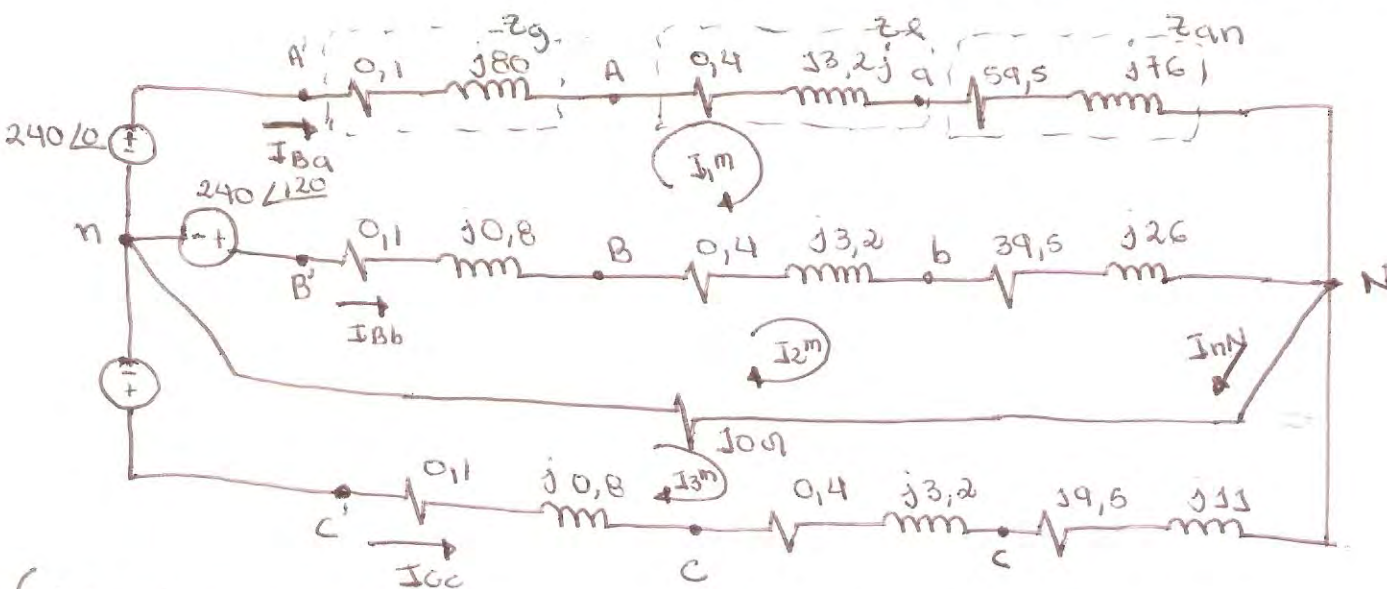 Zg Zl Zan
A' 0,1 j80 A 0,4 j3,2j a 59,5 j76j
240∠0 ±
IBa
I1m
240∠120
n - + 0,1 j0,8 B 0,4 j3,2 b 39,5 j26 N
B'
IBb
I2m InN
- +
J0Ω
0,1 j0,8 I3m 0,4 j3,2 J9,5 jJJ
C' C c
ICc